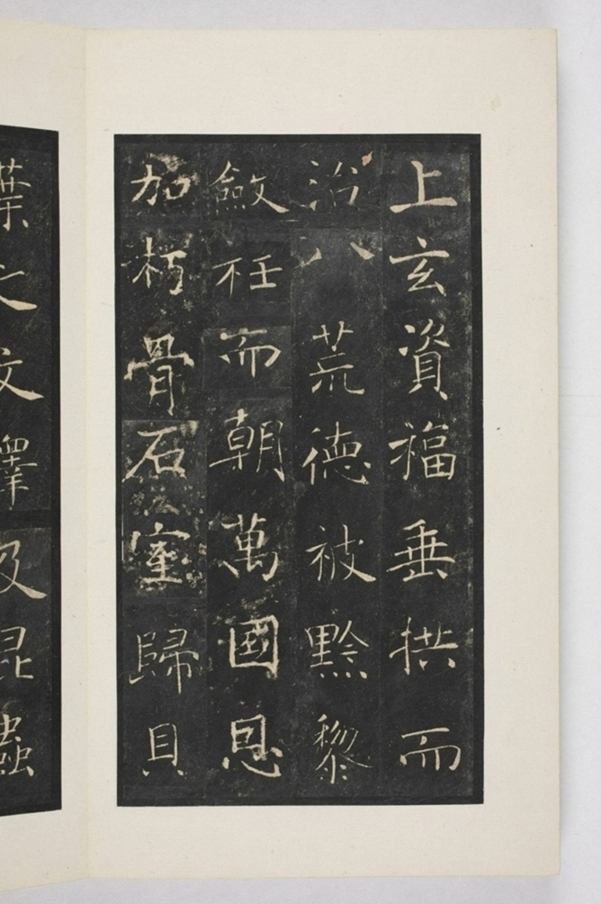 上玄資福垂拱而
治八荒德被黔黎
斂衽而朝萬國恩
加朽骨石室歸貝
葉之文澤及昆蟲